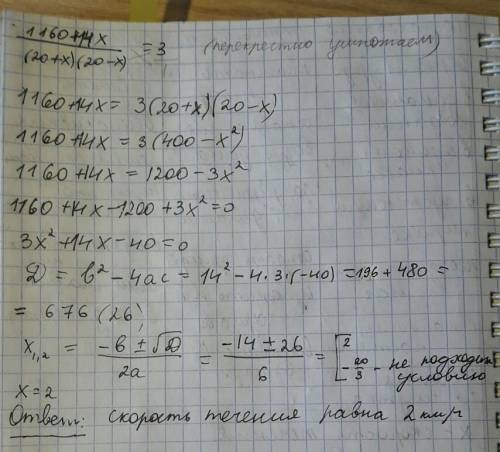 1160+14x / (20+x)(20-x) = 3 (перекрестно умножаем)
1160+14x = 3(20+x)(20-x)
1160+14x = 3(400-x²)
1160+14x = 1200-3x²
1160+14x-1200+3x²=0
3x²+14x-40=0
D = b²-4ac = 14²-4·3·(-40) = 196+480 =
= 676 (26)
x₁,₂ = -b ± √D / 2a = -14 ± 26 / 6 = [ 2
-20/3 - не подходит
условию
x=2
Ответ: скорость течения равна 2 км/ч